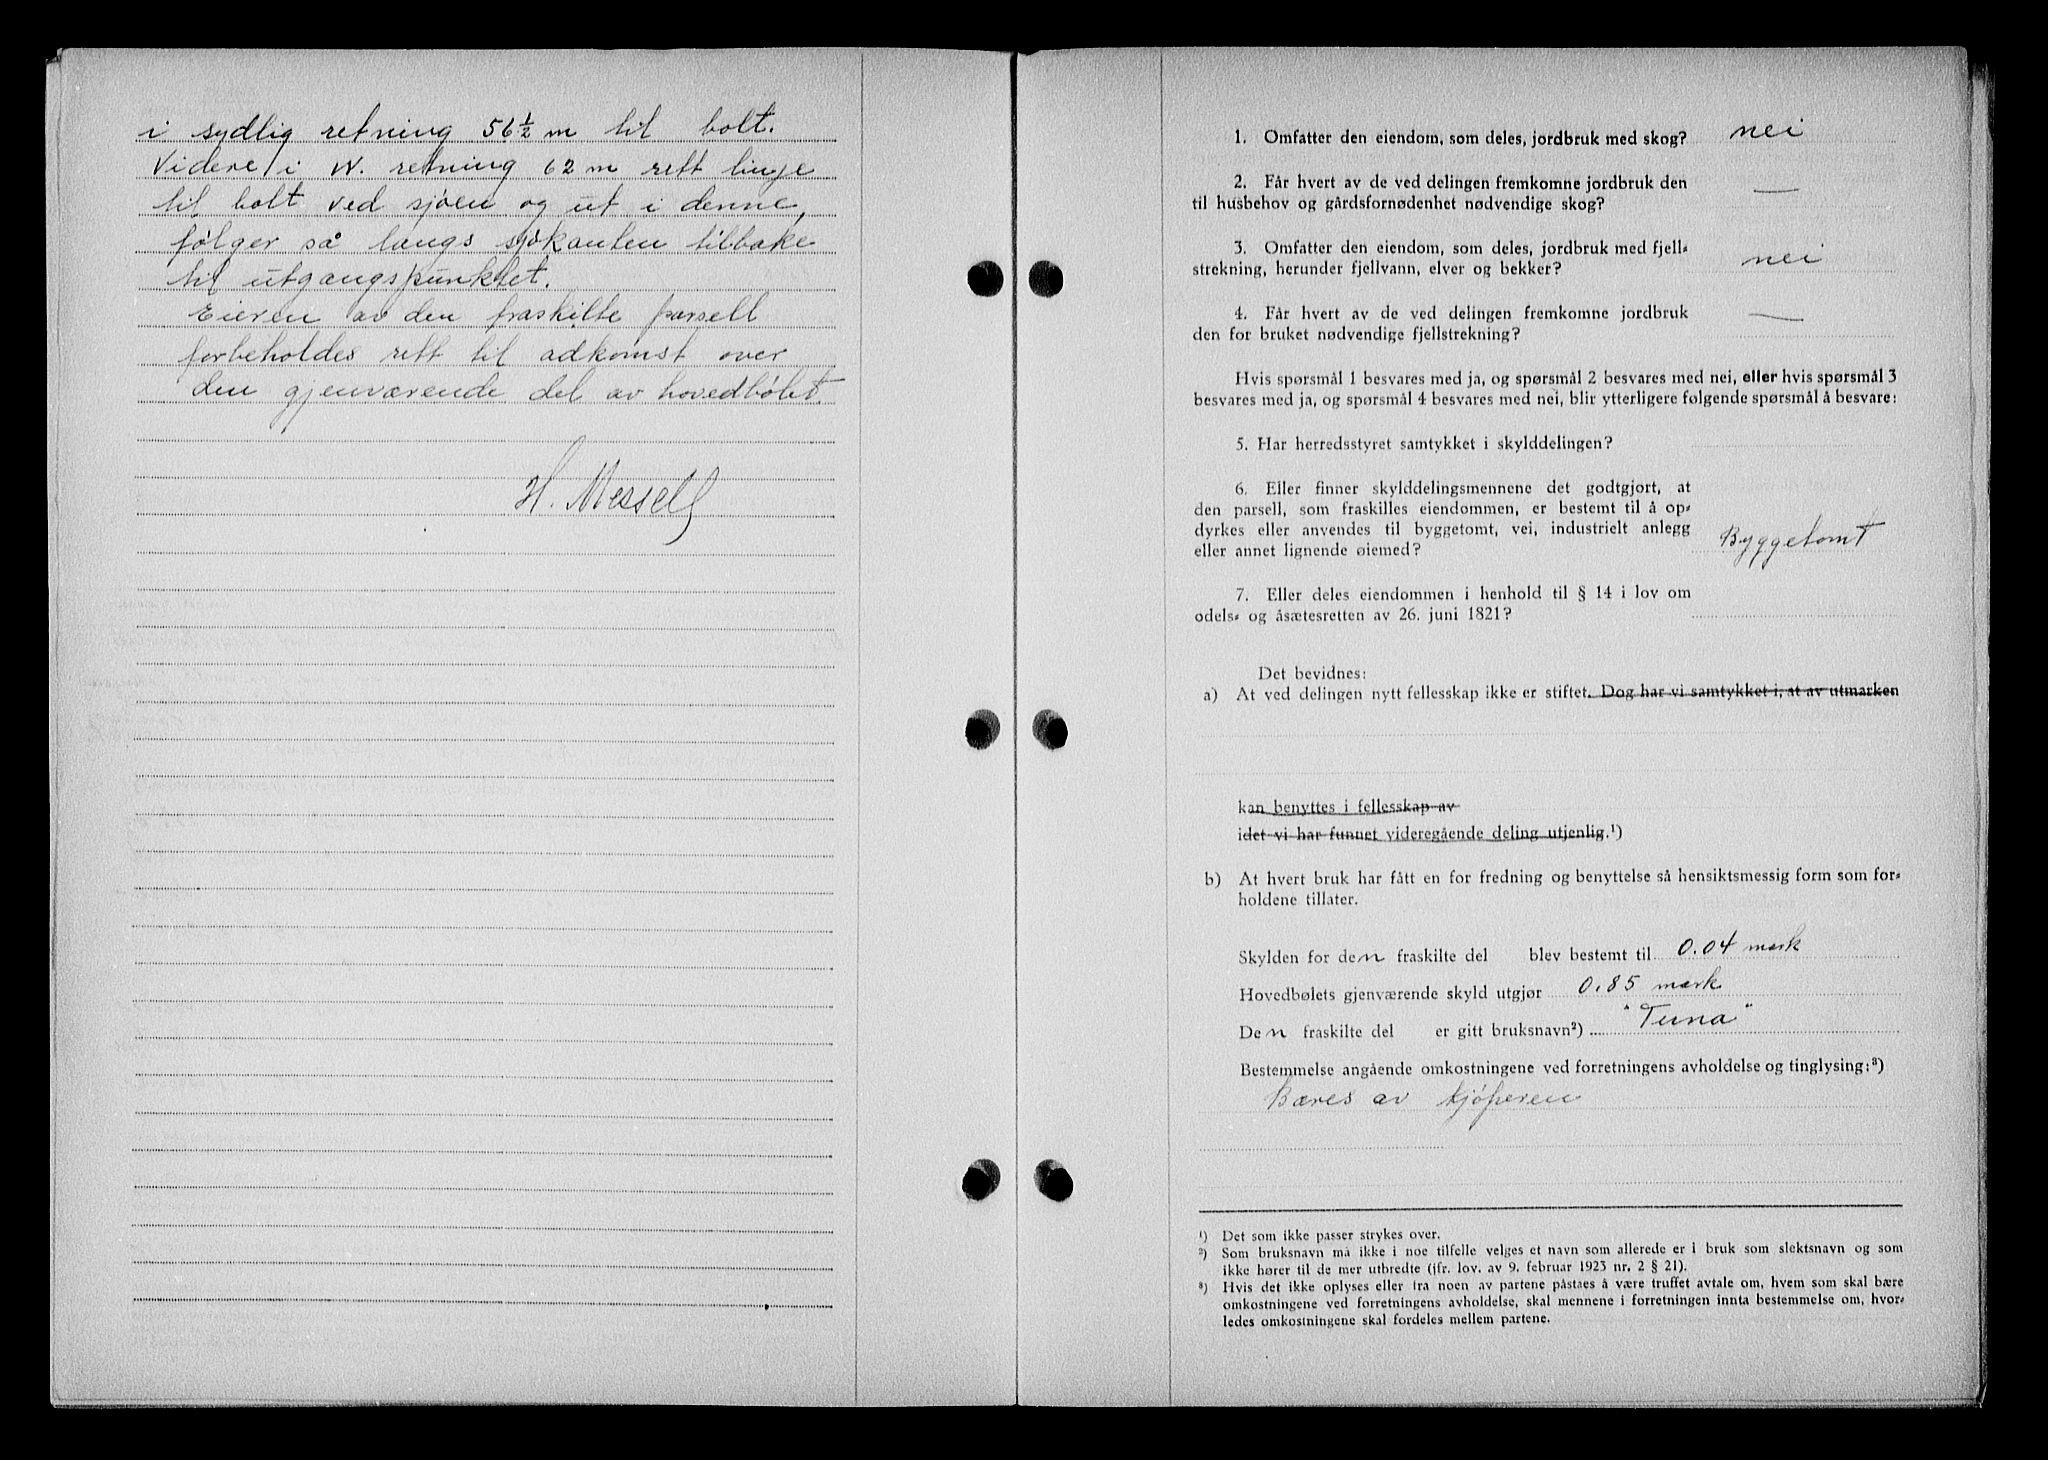 i sydlig retning 56 1/2 m til bolt.
Videre i W. retning 62 m rett linje
til bolt ved sjøen og ut i denne,
følger så langs sjøkanten tilbake
til utgangspunktet.
Eieren av den fraskilte parsell
forbeholdes rett til adkomst over
den gjenværende del av hovedbølet.
H. Messell
1. Omfatter den eiendom, som deles, jordbruk med skog? nei
2. Får hvert av de ved delingen fremkomne jordbruk den
til husbehov og gårdsfornødenhet nødvendige skog? —
3. Omfatter den eiendom, som deles, jordbruk med fjell-
strekning, herunder fjellvann, elver og bekker? nei
4. Får hvert av de ved delingen fremkomne jordbruk
den for bruket nødvendige fjellstrekning? —
Hvis spørsmål 1 besvares med ja, og spørsmål 2 besvares med nei, eller hvis spørsmål 3
besvares med ja, og spørsmål 4 besvares med nei, blir ytterligere følgende spørsmål å besvare:
5. Har herredsstyret samtykket i skylddelingen?
6. Eller finner skylddelingsmennene det godtgjort, at
den parsell, som fraskilles eiendommen, er bestemt til å op-
dyrkes eller anvendes til byggetomt, vei, industrielt anlegg
eller annet lignende øiemed? Byggetomt
7. Eller deles eiendommen i henhold til § 14 i lov om
odels- og åsætesretten av 26. juni 1821?
Det bevidnes:
a) At ved delingen nytt fellesskap ikke er stiftet. Dog har vi samtykket i, at av utmarken
kan benyttes i fellesskap av
idet vi har funnet videregående deling utjenlig.¹)
b) At hvert bruk har fått en for fredning og benyttelse så hensiktsmessig form som for-
holdene tillater.
Skylden for den fraskilte del blev bestemt til 0.04 mark
Hovedbølets gjenværende skyld utgjør 0.85 mark
Den fraskilte del er gitt bruksnavn²) "Tuna"
Bestemmelse angående omkostningene ved forretningens avholdelse og tinglysing:³)
Bæres av kjøperen
¹) Det som ikke passer strykes over.
²) Som bruksnavn må ikke i noe tilfelle velges et navn som allerede er i bruk som slektsnavn og som
ikke hører til de mer utbredte (jfr. lov. av 9. februar 1923 nr. 2 § 21).
³) Hvis det ikke oplyses eller fra noen av partene påstaes å være truffet avtale om, hvem som skal bære
omkostningene ved forretningens avholdelse, skal mennene i forretningen innta bestemmelse om, hvor-
ledes omkostningene skal fordeles mellem partene.